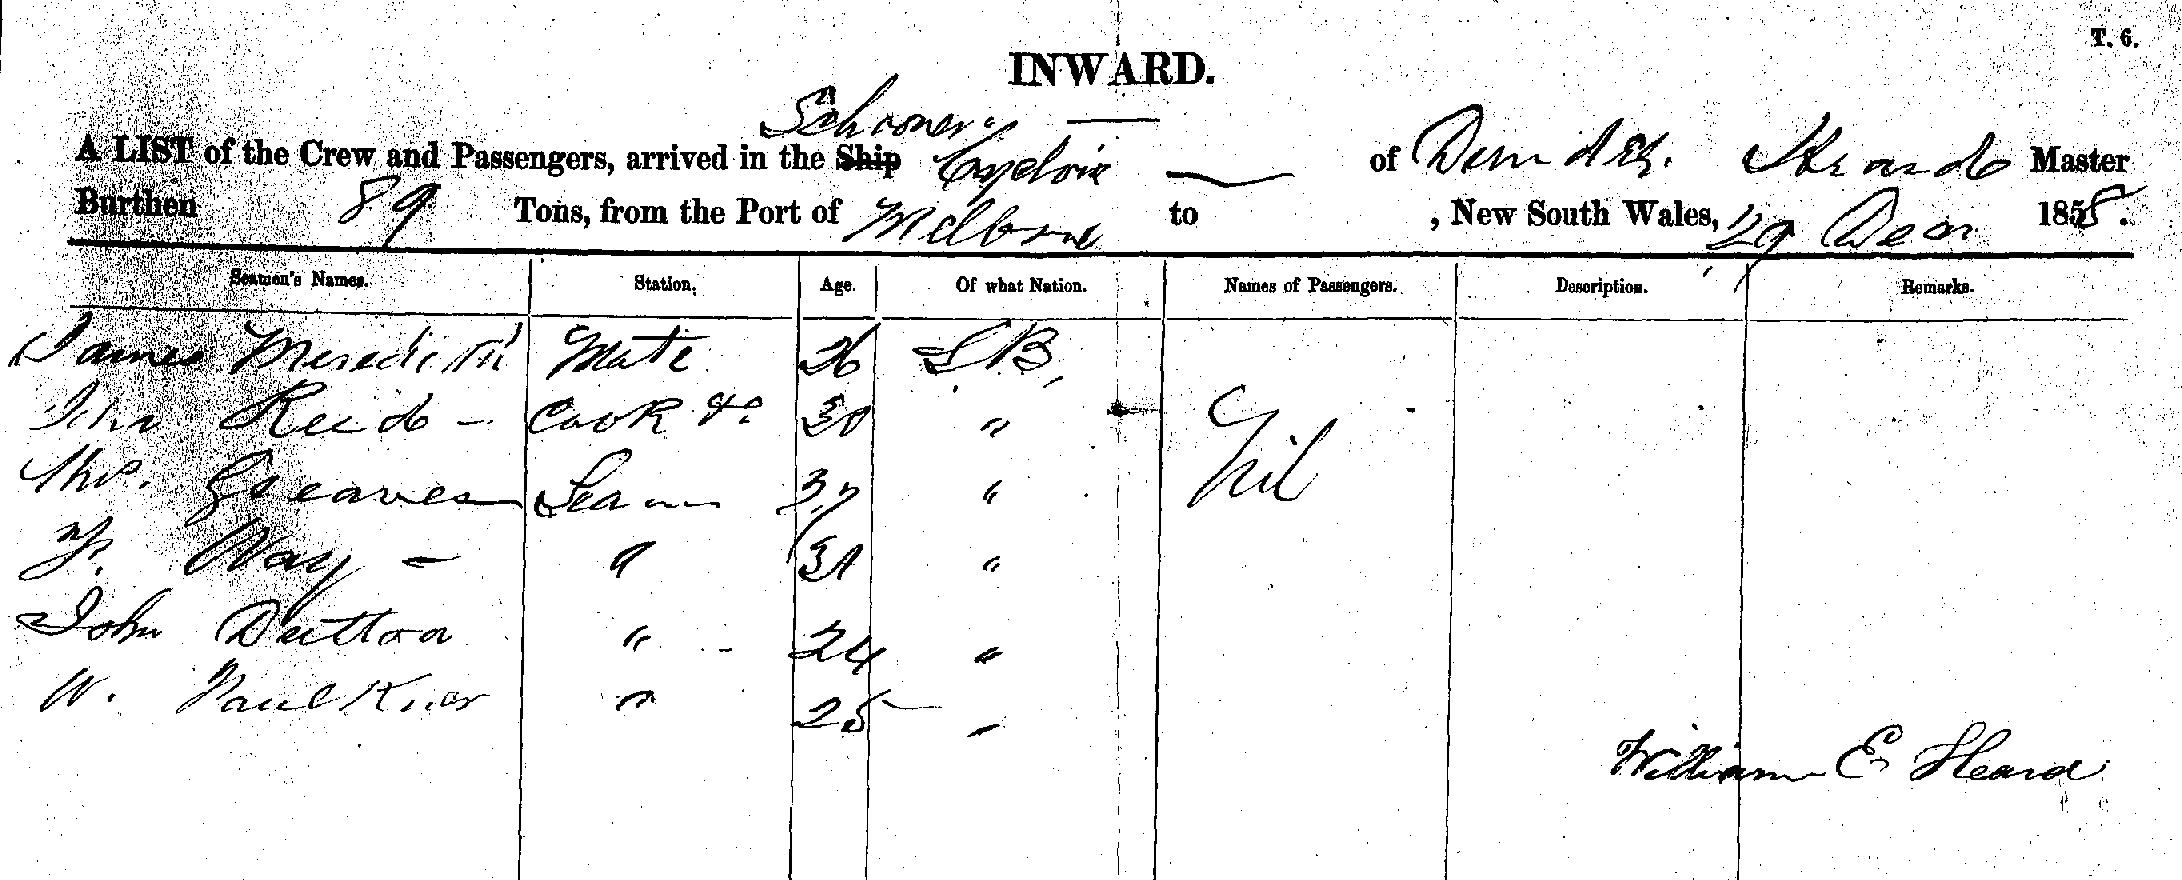 T. 6.
INWARD.
Schooner
A LIST of the Crew and Passengers, arrived in the Ship of Dundee. Heard Master
Burthen 89 Tons, from the Port of Melbne to , New South Wales, 29 Decr 1858.
Seamen's Names. Station. Age. Of what Nation. Names of Passengers. Description. Remarks.
James Meredith Mate 26 GB,
John Reid - Cook &c 30 "
Thos. Greaves Seamn 37 " Nil
Way - " 31 "
John Dutton " 24 "
W. Faulkner " 25 "
William E Heard